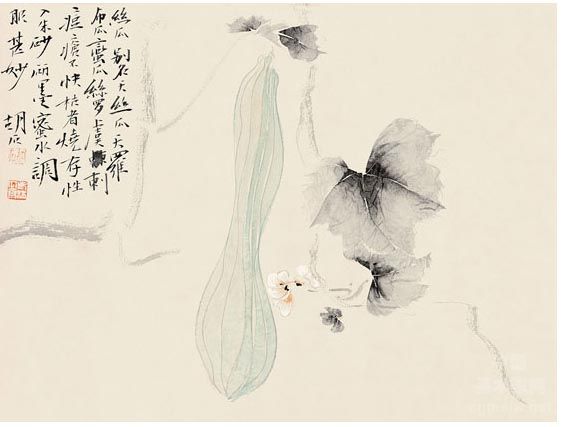 絲瓜別名天絲瓜天羅
布瓜蠻瓜絲罗上刺
痘瘡不快枯者燒存性
入朱砂研墨蜜水調
服甚妙 胡石